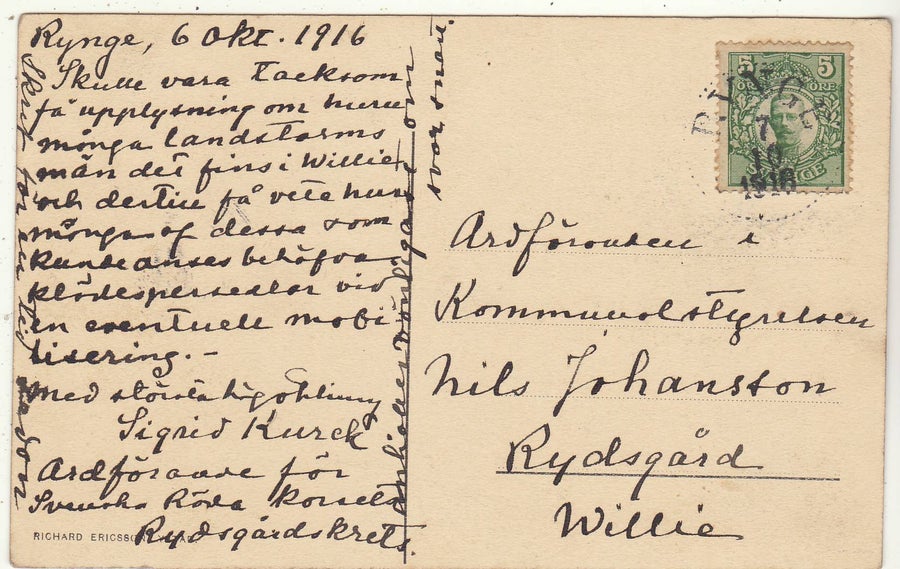 Rynge, 6 Okt. 1916
Skulle vara tacksam
få upplysning om huru
många landstorms
män det fins i Willie
och dertill få veta huru
många af dessa som
kunde anses behöfva
klädespersedlar vid
en eventuell mobi
lisering. -
Med största högaktning
Sigrid Kurck
Ordförande för
Svenska Röda Korsets
Rydsgårdskrets.
anhålles vänligast om
svar snart.
Skrif för en
RICHARD ERICSSON
5 5
ÖRE ÖRE
RYNGE
7
10
1916
Ordföranden i
Kommunalstyrelsen
Nils Johansson
Rydsgård
Willie